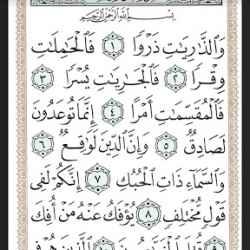 بِسْمِ اللَّهِ الرَّحْمَٰنِ الرَّحِيمِ
وَالذَّارِيَاتِ ذَرْوًا ١ فَالْحَامِلَاتِ
وِقْرًا ٢ فَالْجَارِيَاتِ يُسْرًا ٣
فَالْمُقَسِّمَاتِ أَمْرًا ٤ إِنَّمَا تُوعَدُونَ
لَصَادِقٌ ٥ وَإِنَّ الدِّينَ لَوَاقِعٌ ٦
وَالسَّمَاءِ ذَاتِ الْحُبُكِ ٧ إِنَّكُمْ لَفِي
قَوْلٍ مُخْتَلِفٍ ٨ يُؤْفَكُ عَنْهُ مَنْ أُفِكَ